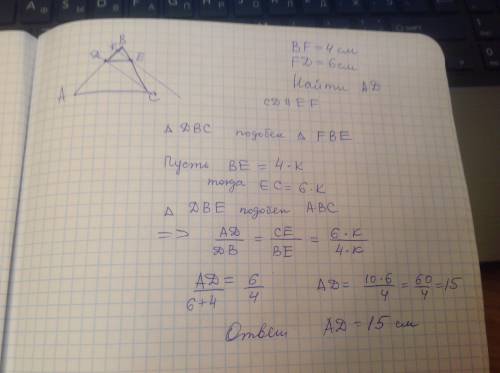 B
F
D E
A C
BF = 4 см
FD = 6 см
Найти AD
CD || EF
Δ DBC подобен Δ FBE
Пусть BE = 4·K
тогда EC = 6·K
Δ DBE подобен ABC
=> AD/DB = CE/BE = 6·K/4·K
AD/6+4 = 6/4 AD = 10·6/4 = 60/4 = 15
Ответ AD = 15 см